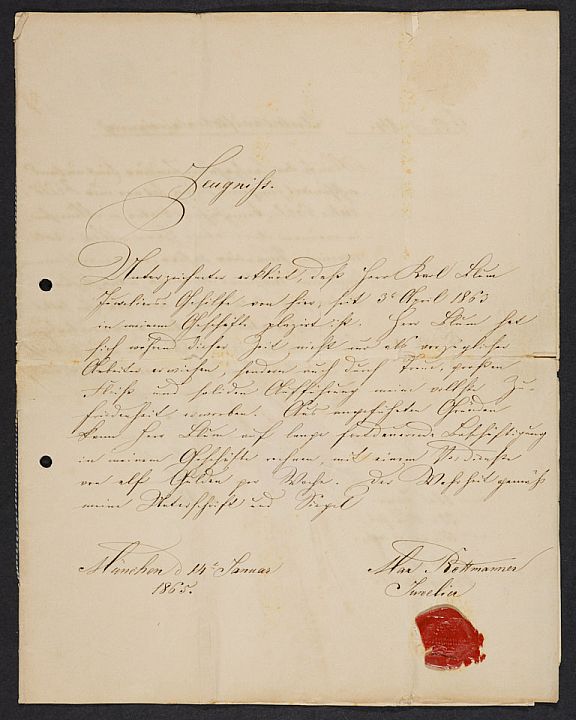 Zeugniss.
Unterzeichneter erklärt, daß Herr Karl Blum
Juweliers Gehilfe von hier, seit 3t April 1863
in meinem Geschäfte plazirt ist. Herr Blum hat
sich während dieser Zeit nicht nur als vorzüglicher
Arbeiter erwiesen, sondern auch durch Treue, großen
Fleiß und soliden Aufführung meine vollste Zu-
friedenheit erworben. Aus angeführten Gründen
kann Herr Blum auf lange fortdauernde Beschäftigung
in meinem Geschäfte rechnen, mit einem Verdienste
von elf Gulden per Woche. Der Wahrheit gemäß
meine Unterschrift und Siegel
München d 14t Januar
1865.
Max Rottmanner
Juwelier